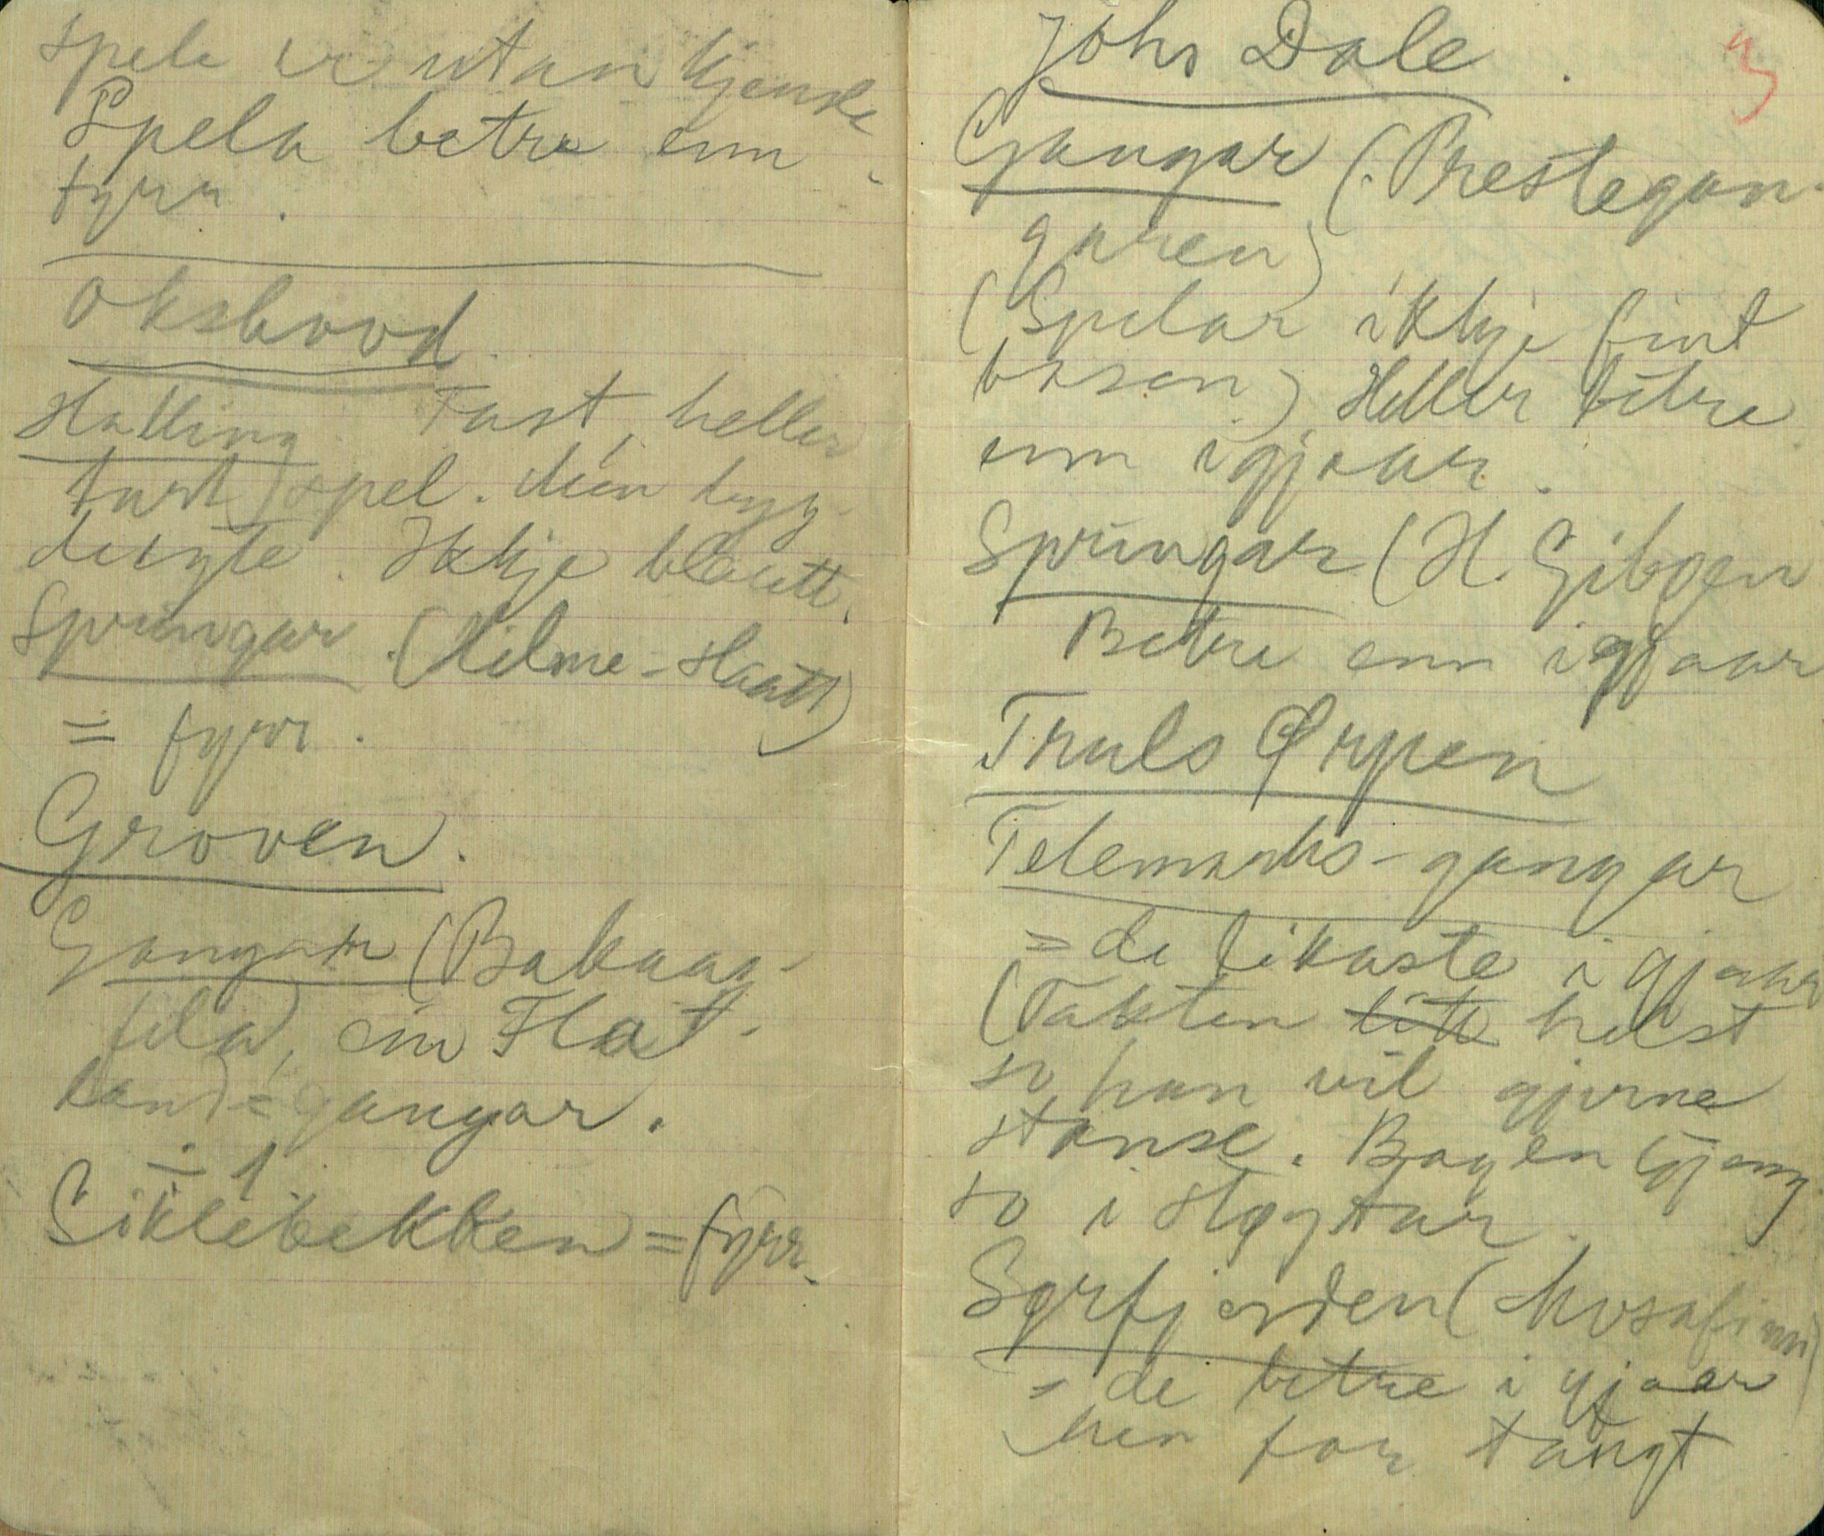 Spela er utan kjensle
Spela betre enn
fyrr.
Okshovd.
Halling. Fast, heller
hardt spel. Men tyg-
deigte. Ikkje blautt.
Springar. (Hilme-Slaatt)
= fyrr.
Groven.
Gangar (Bakaag-
fela), ein Flat-
land = gangar.
÷ 1
Siklebekken = fyrr.
John Dale.
3
Gangar (Prestegan-
garen)
(Spelar ikkje fint
basen). Heller betre
enn igjaar.
Springar (H. Gibøen
Betre enn igjaar
Truls Ørpen
Telemarks-gangar
= de likaste i gjaar
(Takten litt helst
so han vil gjerne
stanse. Bogen gjeng
so i støytar.
Sørfjorden (Mosafinn)
= de betre i gjaar
Men for tungt